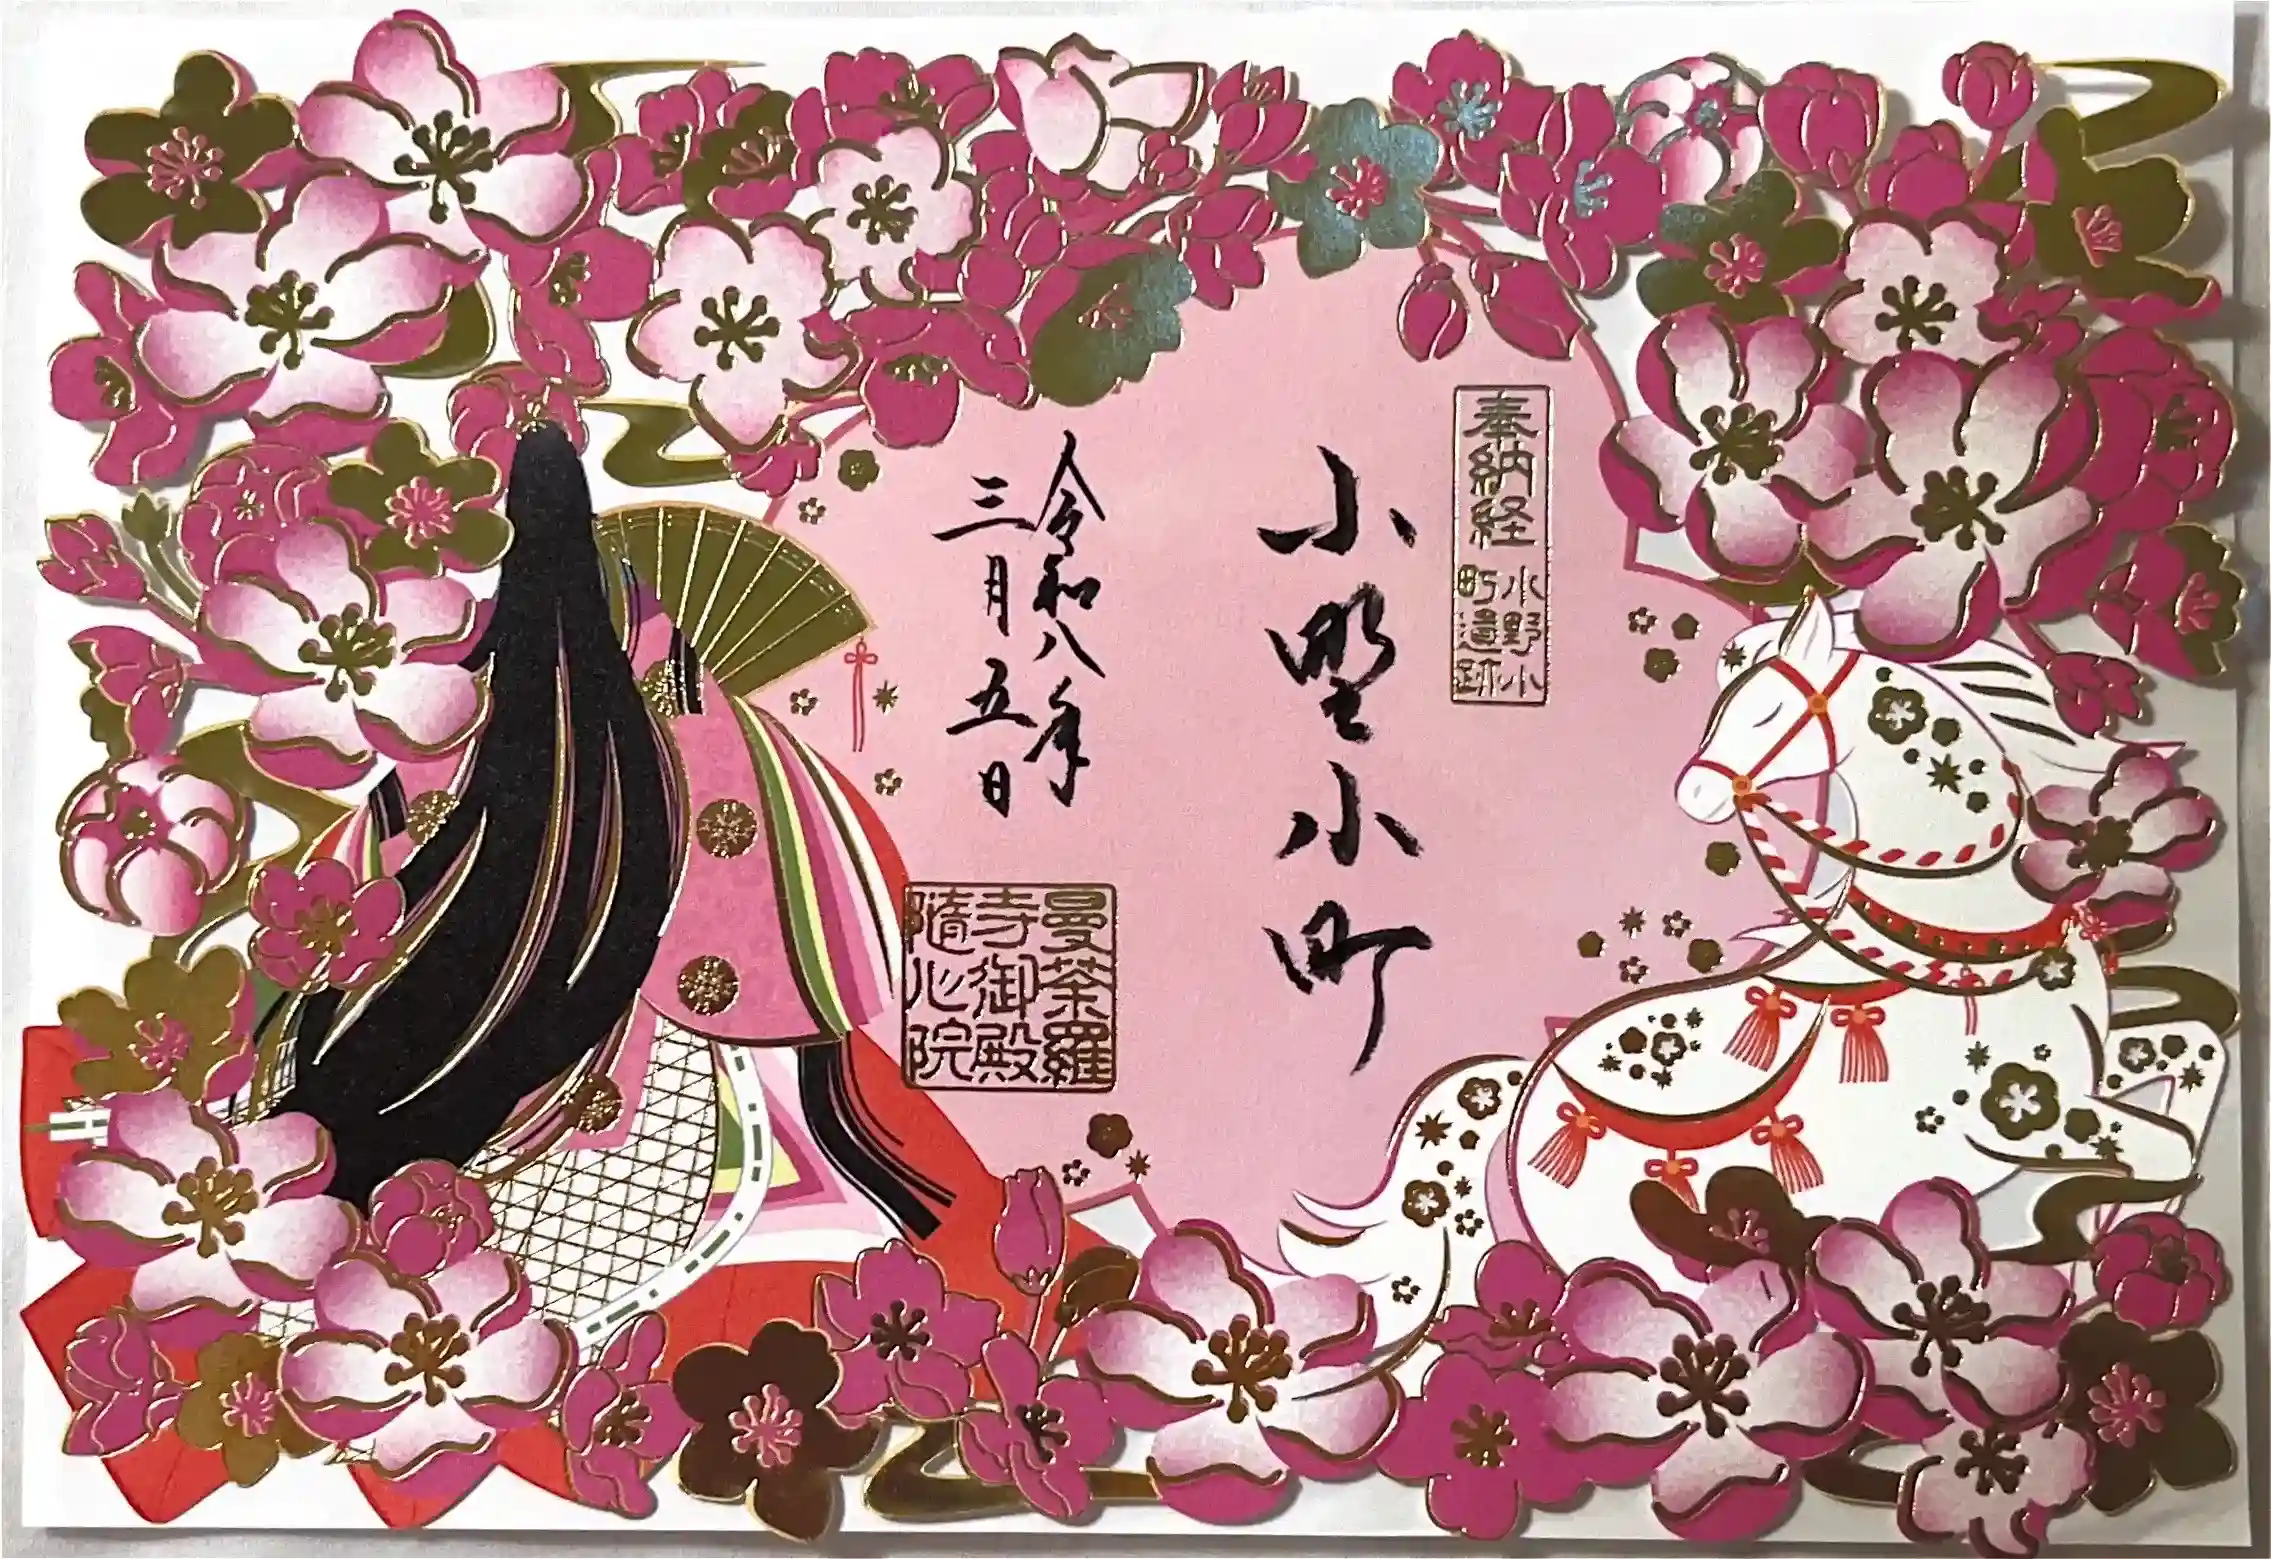 奉納経
小野小
町遺跡
小野小町
令和八年
三月五日
曼荼羅
寺御殿
隨心院